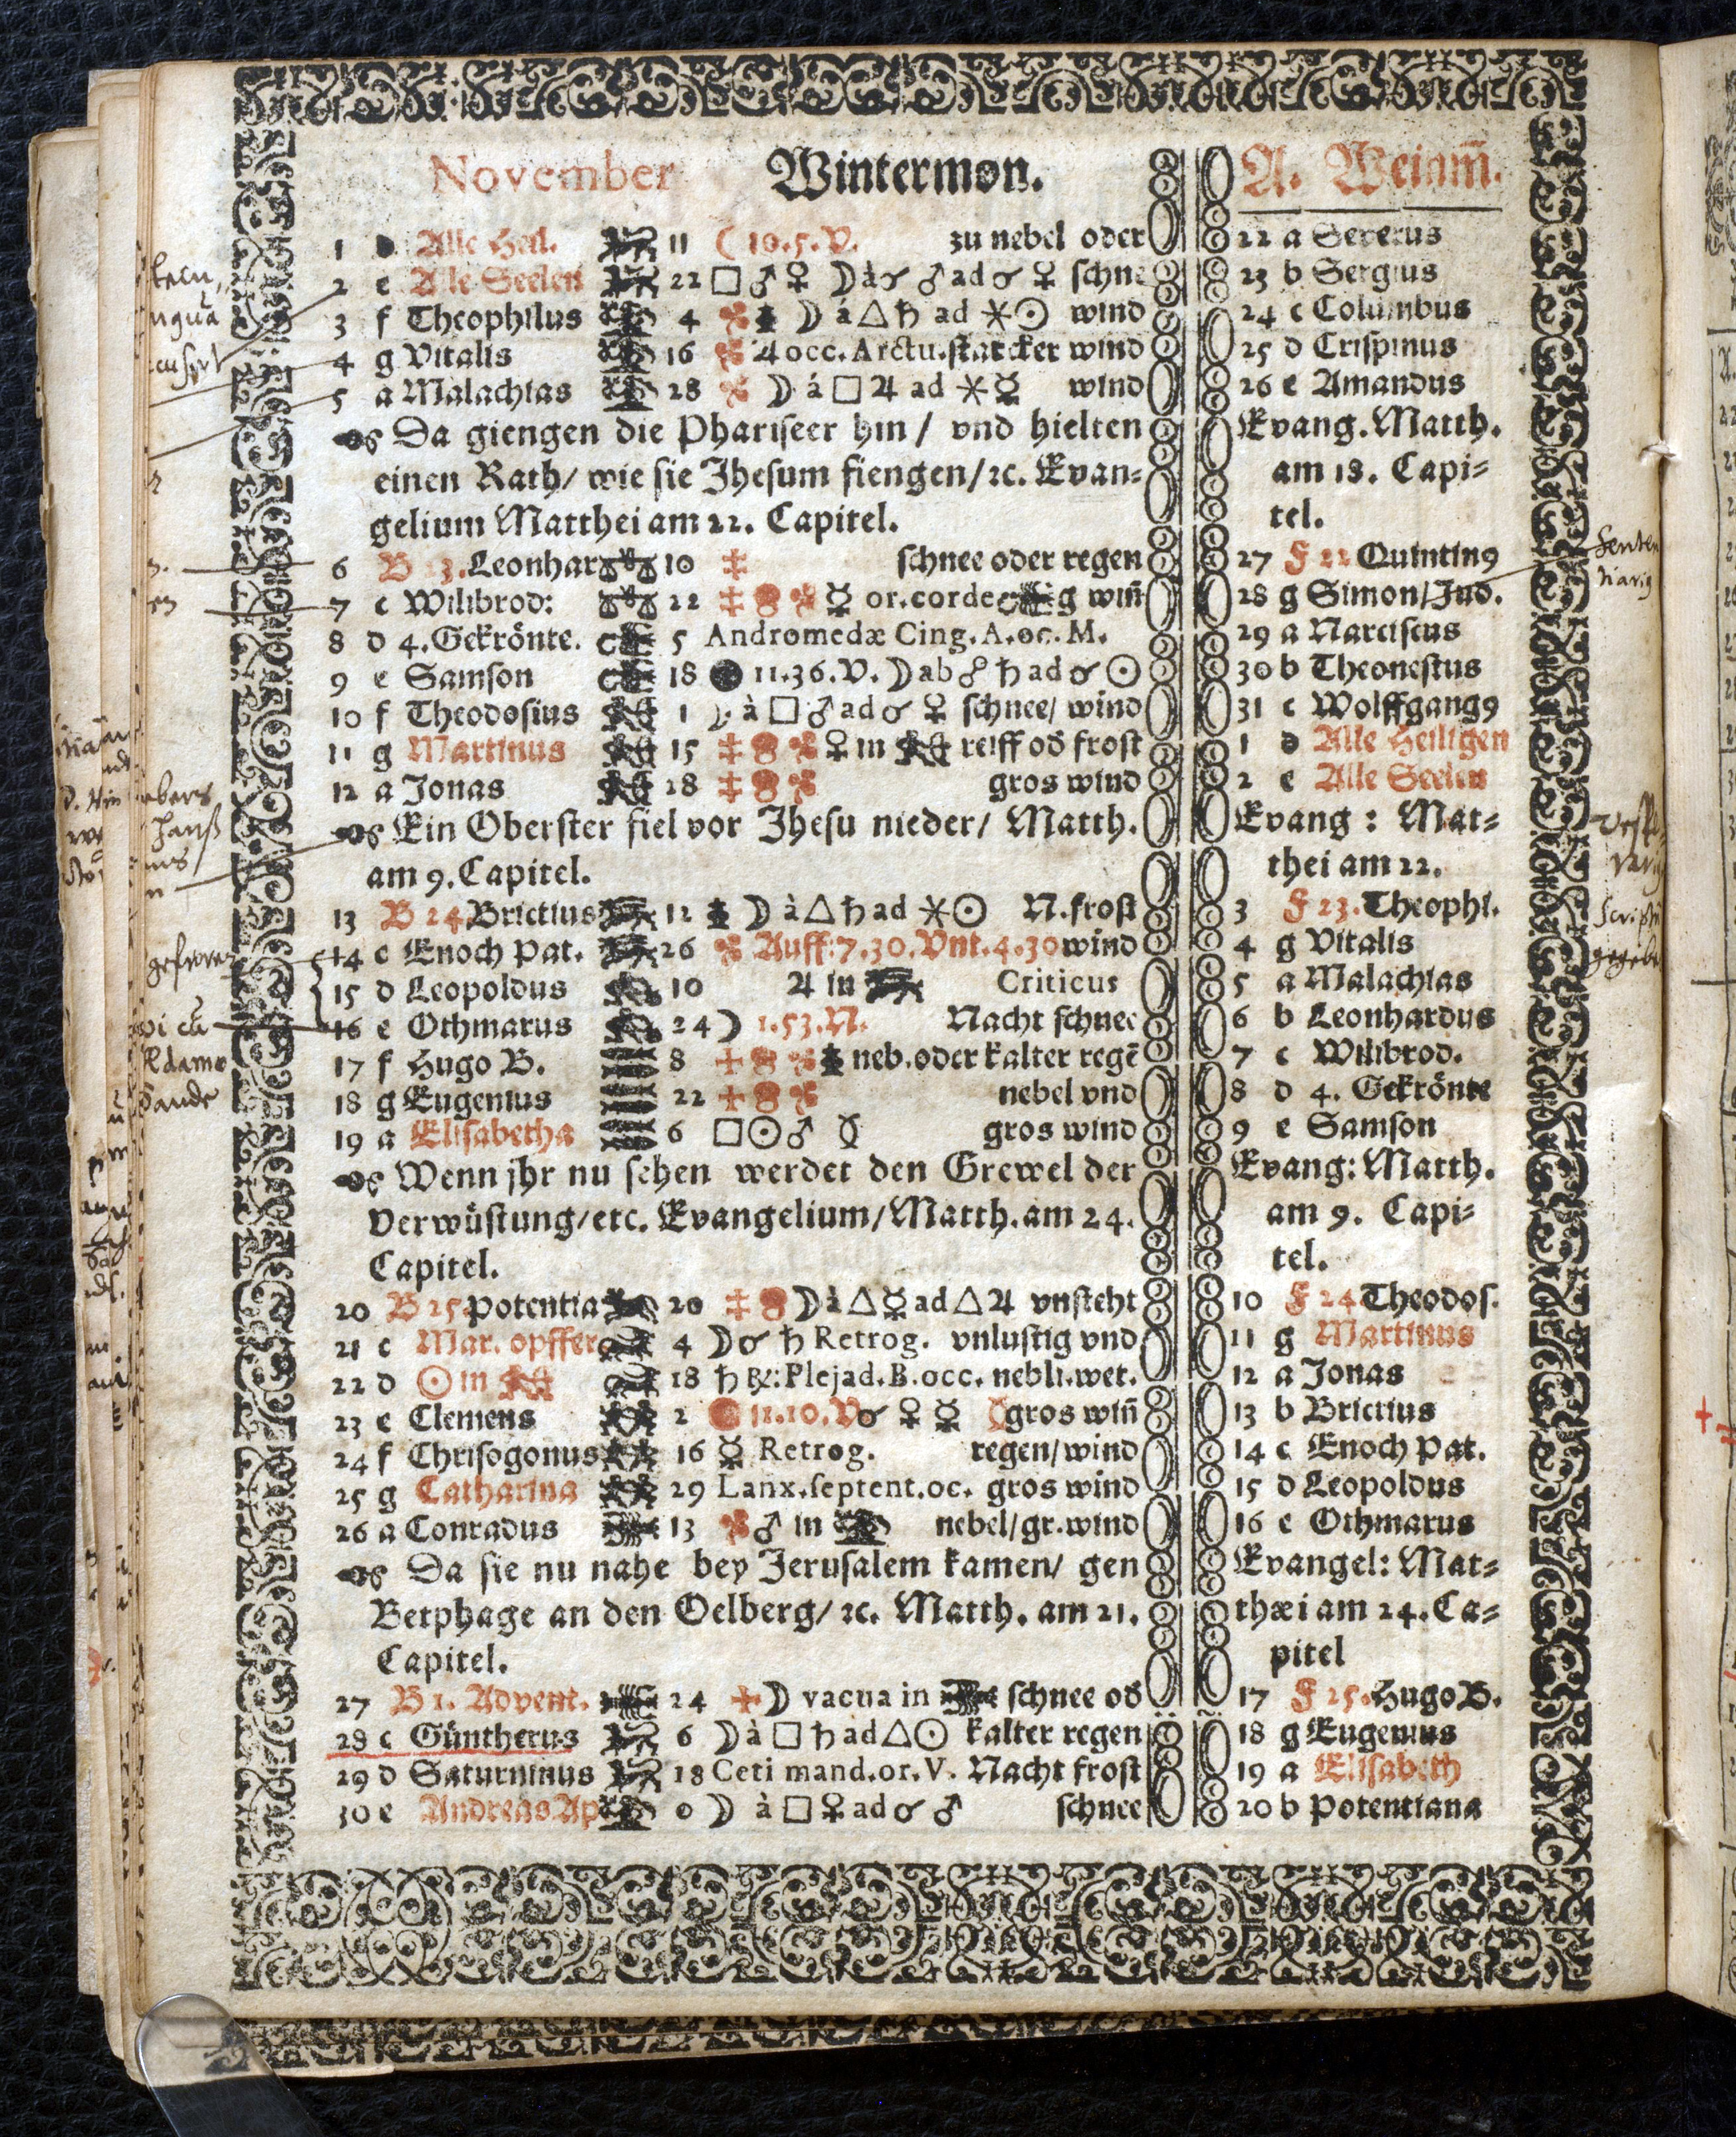 November Wintermon.
1 d Alle Heil. 11 ( 10.5.V. zu nebel oder
2 e Alle Seelen 22 □ ♂ ♀ ☽ à ☌ ♂ ad ☌ ♀ schne
3 f Theophilus 4 ☽ á △ ♄ ad ⚹ ☉ wind
4 g Vitalis 16 ♃ occ. Arctu. starcker wind
5 a Malachias 28 ☽ á □ ♃ ad ⚹ ☿ wind
Da giengen die Phariseer hin / vnd hielten
einen Rath / wie sie Jhesum fiengen / ꝛc. Evan⸗
gelium Matthei am 22. Capitel.
6 B 23. Leonhar 10 schnee oder regen
7 c Wilibrod: 22 ☿ or. corde g wiñ
8 d 4. Gekrönte. 5 Andromedæ Cing. A. oc. M.
9 e Samson 18 ● 11.36. V. ☽ ab ☍ ♄ ad ☌ ☉
10 f Theodosius 1 ☽ à □ ♂ ad ☌ ♀ schnee / wind
11 g Martinus 15 ♀ in reiff od frost
12 a Jonas 28 gros wind
Ein Oberster fiel vor Jhesu nieder / Matth.
am 9. Capitel.
13 B 24. Brictius 12 ☽ à △ ♄ ad ⚹ ☉ N. frost
14 c Enoch Pat. 26 Auff: 7.30. Vnt. 4.30 wind
15 d Leopoldus 10 ♃ in Criticus
16 e Othmarus 24 ☽ 1.53. N. Nacht schnee
17 f Hugo B. 8 neb. oder kalter regē
18 g Eugenius 22 nebel vnd
19 a Elisabetha 6 □ ☉ ♂ gros wind
Wenn jhr nu sehen werdet den Grewel der
Verwüstung / etc. Evangelium / Matth. am 24.
Capitel.
20 B 25. Potentia 20 ☽ à △ ☿ ad △ ♃ vnsteht
21 c Mar. opffer 4 ☽ ☌ ♄ Retrog. vnlustig vnd
22 d ☉ in 18 ♄ ℞: Plejad. B. occ. nebli. wet.
23 e Clemens 2 11.10. V ☌ ♀ ☿ gros wiñ
24 f Chrisogonus 16 ☿ Retrog. regen / wind
25 g Catharina 29 Lanx. septent. oc. gros wind
26 a Conradus 13 ♂ in nebel / gr. wind
Da sie nu nahe bey Jerusalem kamen / gen
Betphage an den Oelberg / ꝛc. Matth. am 21.
Capitel.
27 B 1. Advent. 24 ☽ vacua in schnee od
28 c Güntherus 6 ☽ à □ ♄ ad △ ☉ kalter regen
29 d Saturninus 18 Ceti mand. or. V. Nacht frost
30 e Andreas Ap 0 ☽ à □ ♀ ad ☌ ♂ schnee
A. Weinm̄.
22 a Severus
23 b Sergius
24 c Columbus
25 d Crispinus
26 e Amandus
Evang. Matth.
am 18. Capi⸗
tel.
27 F 22 Quintinꝰ
28 g Simon / Jud.
29 a Narciscus
30 b Theonestus
31 c Wolffgangꝰ
1 d Alle Heiligen
2 e Alle Seelen
Evang: Mat⸗
thei am 22.
3 F 23. Theophi.
4 g Vitalis
5 a Malachias
6 b Leonhardus
7 c Wilibrod.
8 d 4. Gekrönte
9 e Samson
Evang: Matth.
am 9. Capi⸗
tel.
10 F 24 Theodos.
11 g Martinus
12 a Jonas
13 b Brictius
14 c Enoch Pat.
15 d Leopoldus
16 e Othmarus
Evangel: Mat⸗
thæi am 24. Ca⸗
pitel
17 F 25. Hugo B.
18 g Eugenius
19 a Elisabeth
20 b Potentiana